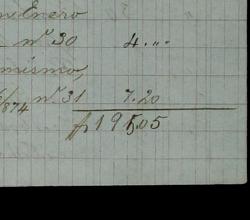 n Enero
nº 30 4 . "
mismo,
/874 nº 31 7.20
195.05